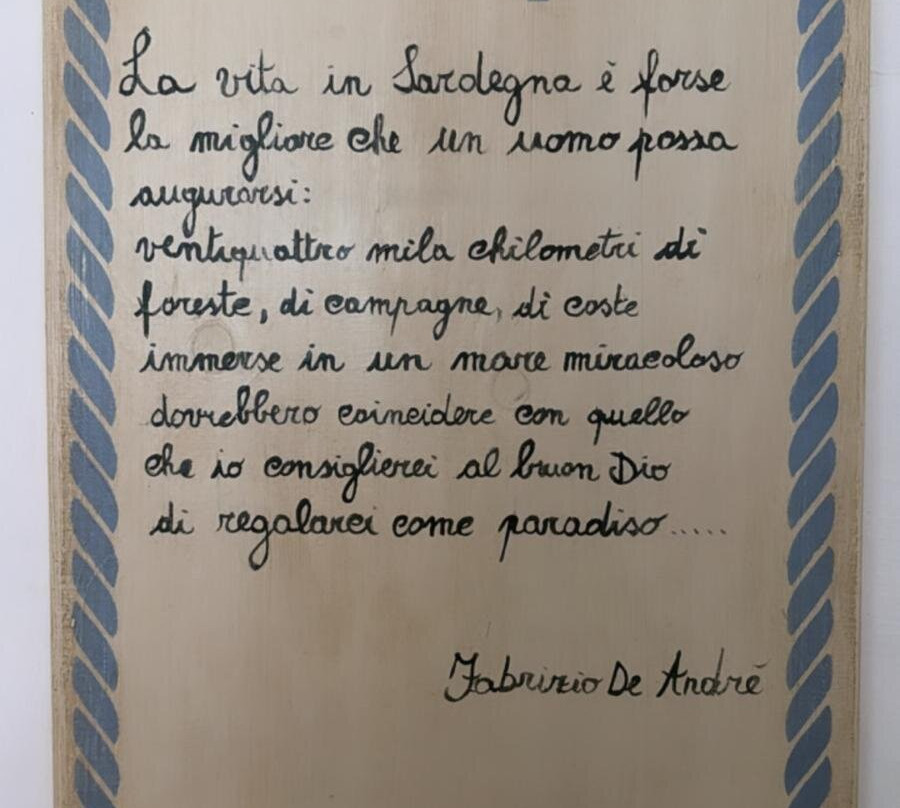 La vita in Sardegna è forse
la migliore che un uomo possa
augurarsi:
ventiquattro mila chilometri di
foreste, di campagne, di coste
immerse in un mare miracoloso
dovrebbero coincidere con quello
che io consiglierei al buon Dio
di regalarci come paradiso.....
Fabrizio De André